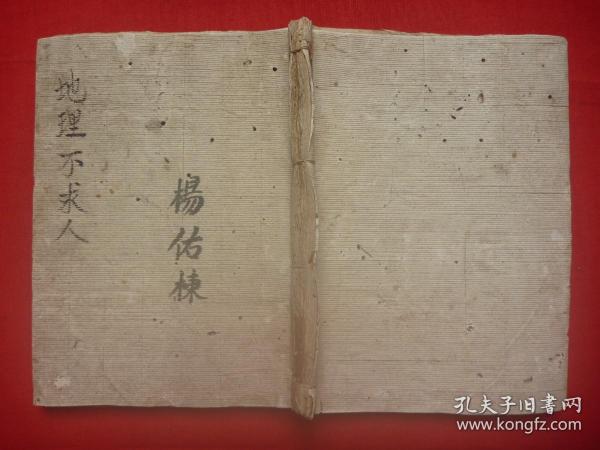 地理不求人
楊佑棟
孔夫子旧書网
www.kongfz.com